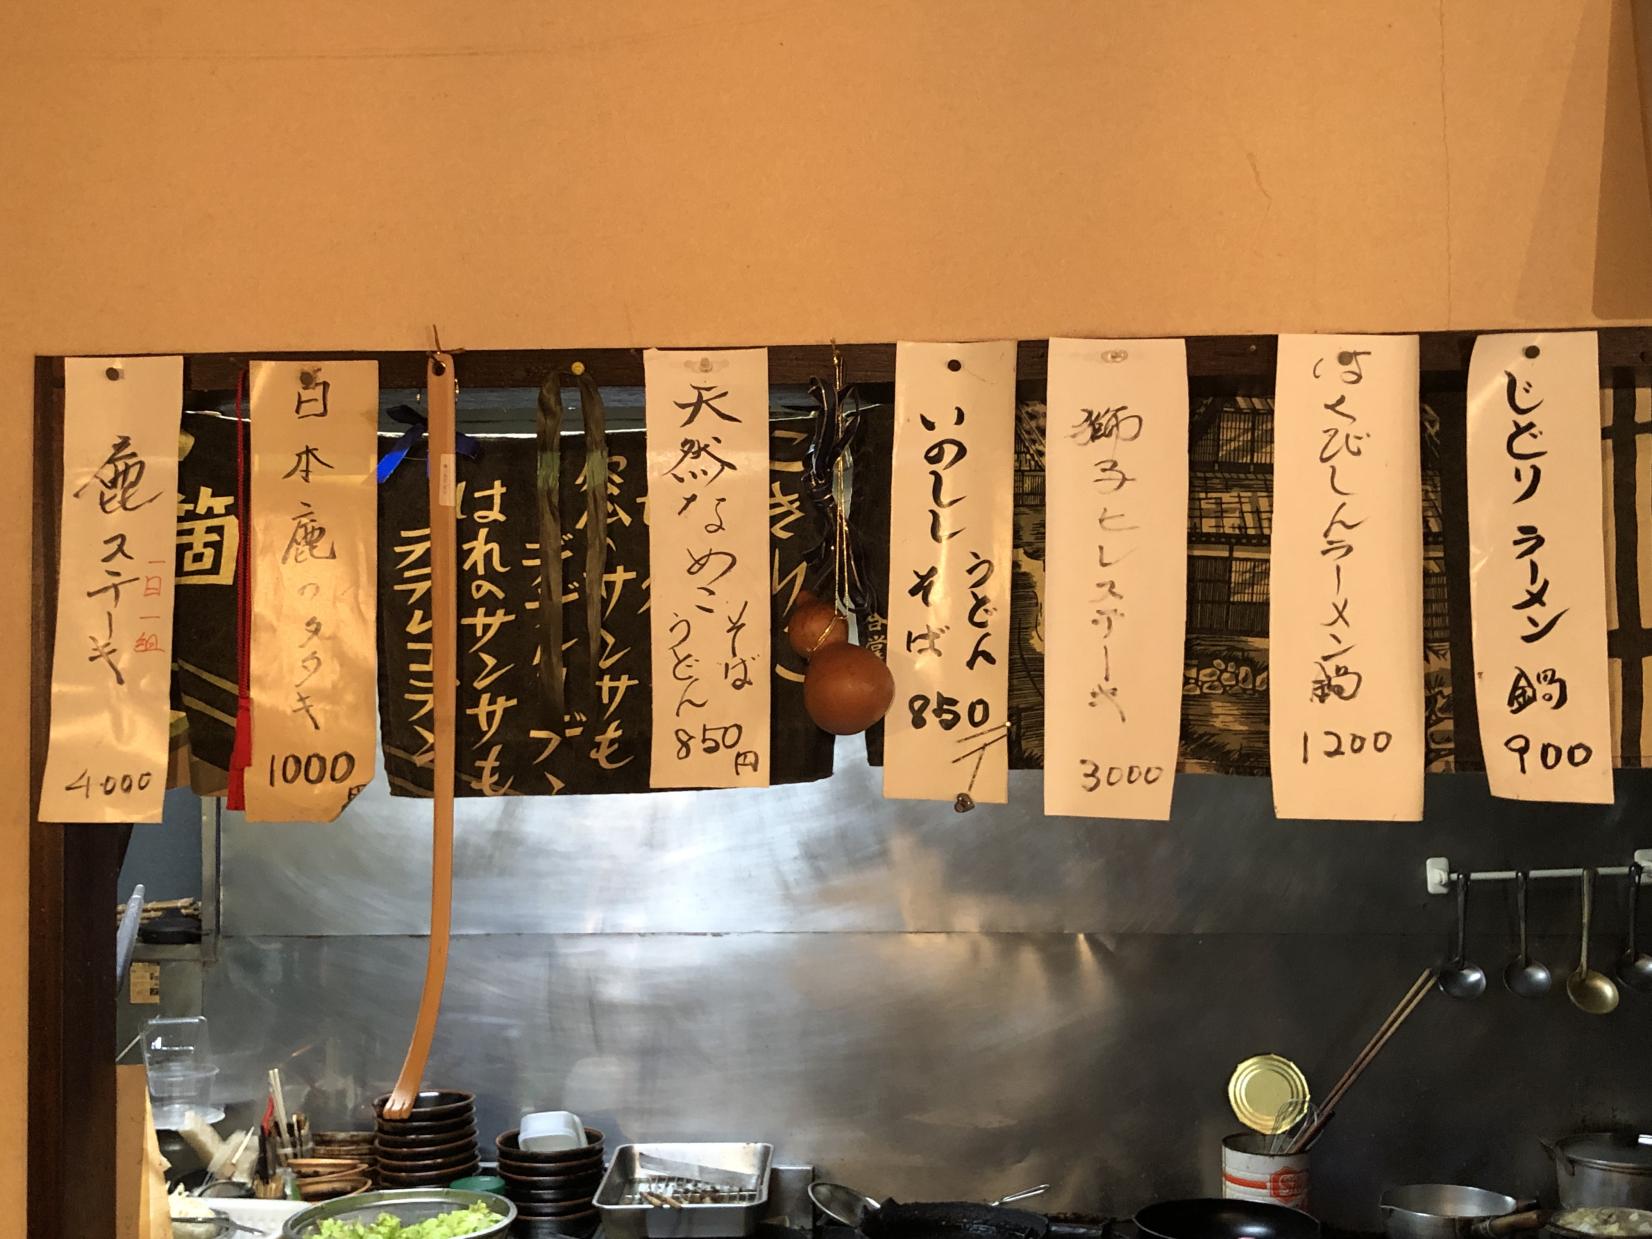 鹿ステーキ
一日一組
4000
日本鹿のタタキ
1000円
はれのサンサも
デデレコデン
窓のサンサも
天然なめこ
そば
うどん
850円
いのしし
うどん
そば
850
獅子ヒレステーキ
3000
はくびしんラーメン鍋
1200
じどりラーメン鍋
900